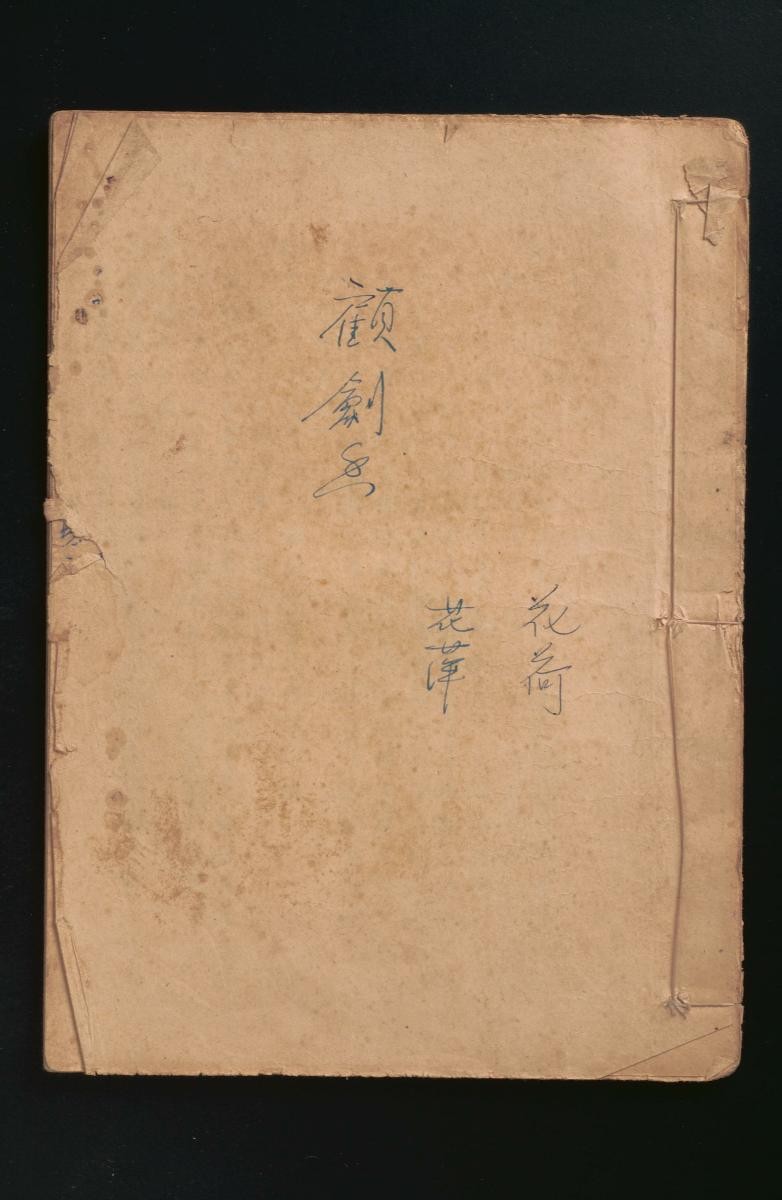 花荷
花萍
顧劍